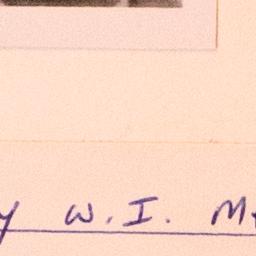 y W. I. M